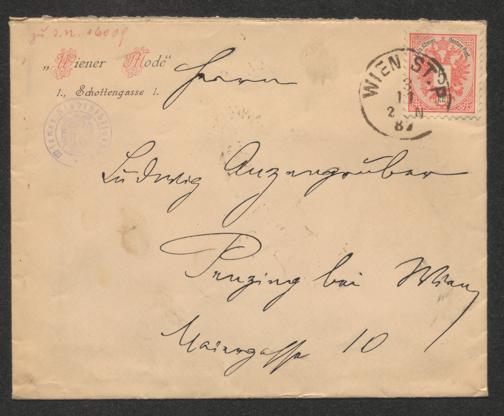 zu J.N. 16009
„Wiener Mode“
I., Schottengasse 1.
WIEN ST.P.
3
11
2 N
87
5
Herrn
Ludwig Anzengruber
Penzing bei Wien
Maiergasse 10